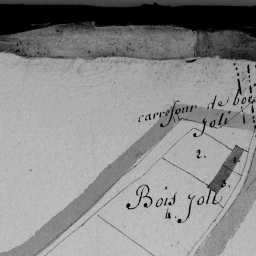 carrefour de bois
Joli
2.
1.
3.
Bois Joli
4.